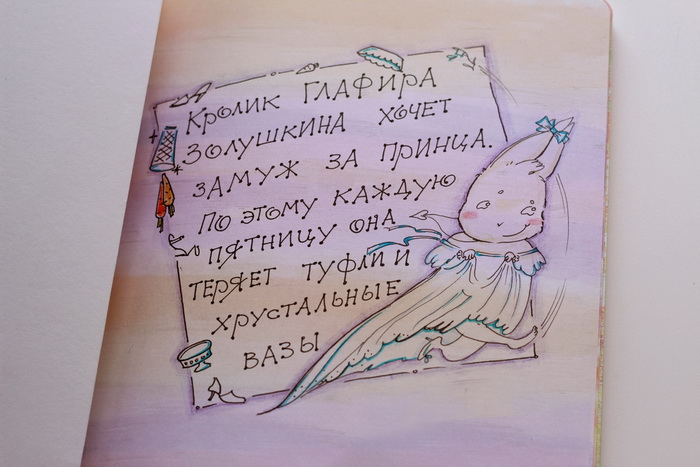 Кролик Глафира
Золушкина хочет
замуж за принца.
По этому каждую
пятницу она
теряет туфли и
хрустальные
вазы